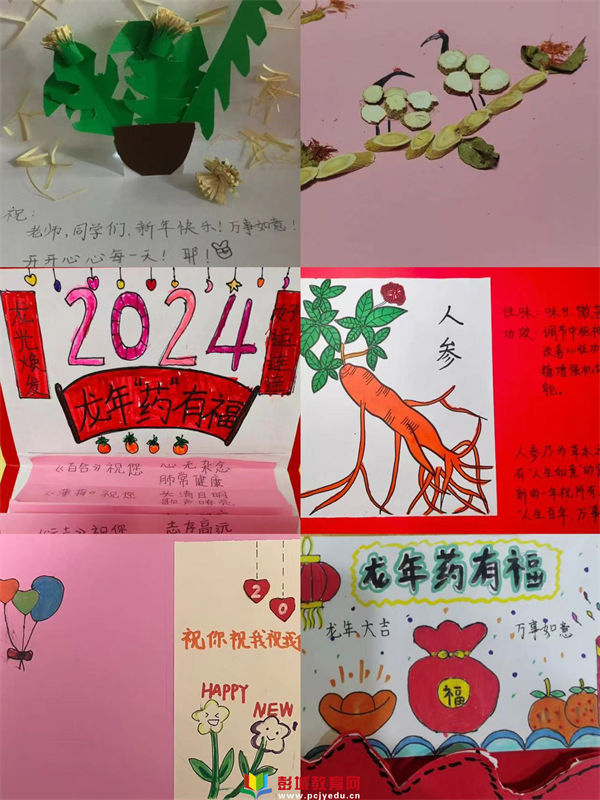 祝:
老师,同学们,新年快乐!万事如意!
开开心心每一天! 耶!
2024
龙光焕发
好运连连
龙年“药”有福
《百合》祝您 心无杂念
肺常健康
《薄荷》祝您 头清目明
《远志》祝您 志存高远
人参
性味:味甘 微苦
功效 调节中枢神
改善心脏功
人参乃为草木
有“人生如意”的
新的一年祝所有
“人生百年 万事
20
祝你祝我祝
HAPPY
NEW
龙年药有福
龙年大吉
万事如意
福
彭城教育网
www.pcjyedu.cn